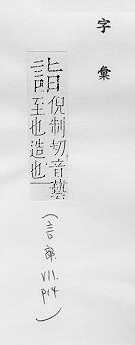 字彙
詣
倪制切音藝
至也造也
(言部 VII. p14)